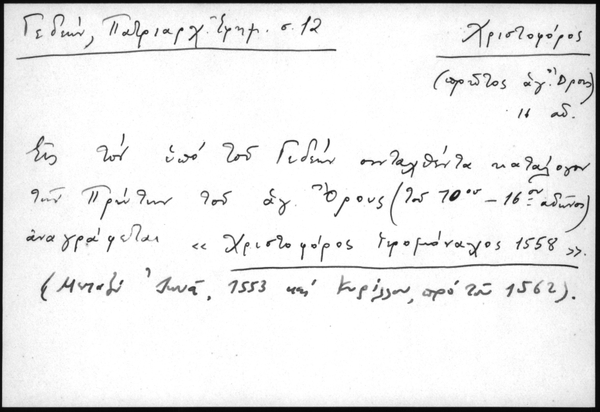 Γεδεών, Πατριαρχ. Ἐφημ. σ. 12
Χριστοφόρος
(πρῶτος ἁγ. Ὄρους)
16 αἰ.
Εἰς τόν ὑπό τοῦ Γεδεών συνταχθέντα κατάλογον
τῶν Πρώτων τοῦ ἁγ. Ὄρους (τοῦ 10ου – 16ου αἰῶνος)
ἀναγράφεται « Χριστοφόρος ἱερομόναχος 1558 ».
(Μεταξύ Ἰωνᾶ, 1553 καί Κυρίλλου, πρό τοῦ 1562).